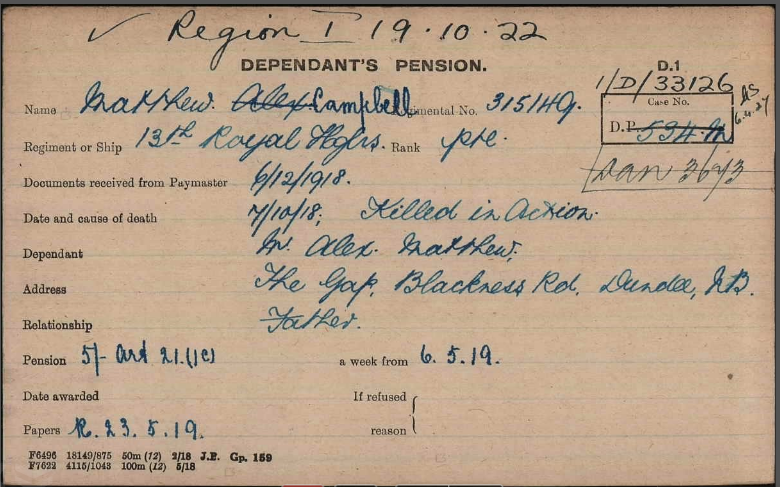 ✓ Region I 19.10.22
DEPENDANT'S PENSION.
D.1
1/D/33126
Name Matthew. Alex Campbell Regimental No. 315149.
Case No.
D.P. 534.M
6.4.27
Regiment or Ship 13th Royal Hghrs. Rank pte.
Dan 36/3
Documents received from Paymaster 6/12/1918.
Date and cause of death 7/10/18; Killed in Action.
Dependant Mr. Alex. Matthew.
Address The Gap, Blackness Rd, Dundee, N.B.
Relationship Father.
Pension 5/- Art 21.(1c) a week from 6.5.19.
Date awarded If refused
Papers R. 23.5.19. reason
F6496 18149/875 50m (12) 2/18 J.P. Gp. 159
F7622 4115/1043 100m (12) 5/18